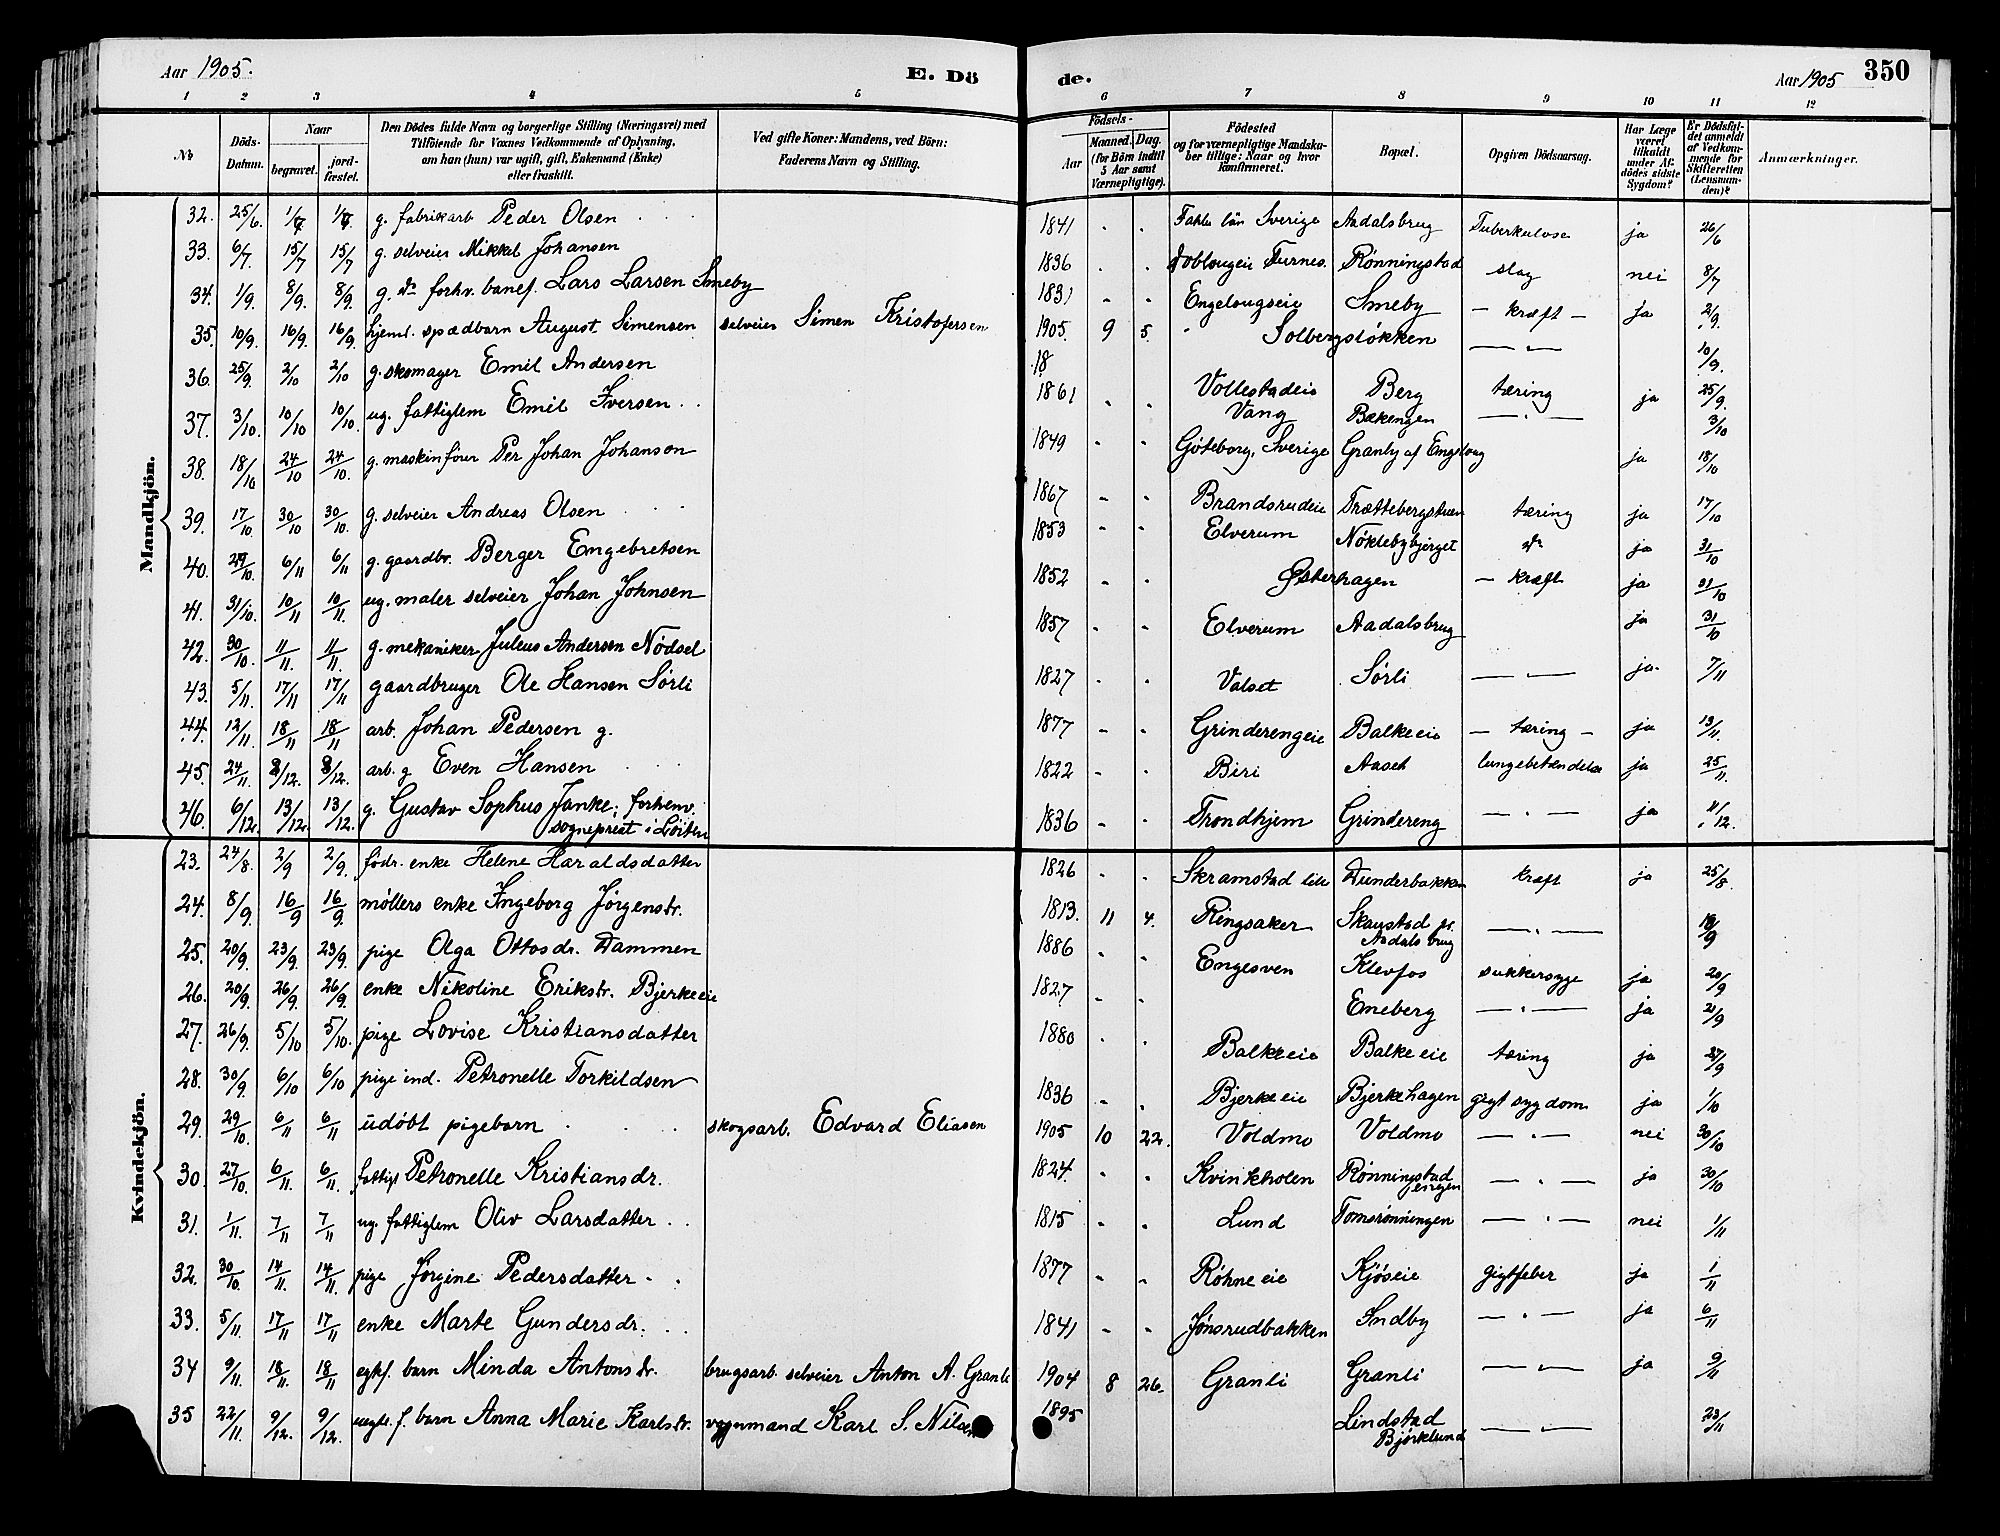 Aar 1905. E. Dö
de. Aar 1905 350
1 2 3 4 5 6 7 8 9 10 11 12
No
Döds-Datum.
Naar
begravet.
jord-fæstet.
Den Dödes fulde Navn og borgerlige Stilling (Næringsvei) med
Tilföiende for Voxnes Vedkommende af Oplysning,
om han (hun) var ugift, gift, Enkemand (Enke)
eller fraskilt.
Ved gifte Koner: Mandens, ved Börn:
Faderens Navn og Stilling.
Födsels-
Aar
Maaned. Dag.
(for Börn indtil
5 Aar samt
Værnepligtige).
Födested
og for værnepligtige Mandska-
ber tillige: Naar og hvor
konfirmeret.
Bopæl.
Opgiven Dödsaarsag.
Har Læge
været
tilkaldt
under Af-
dödes sidste
Sygdom?
Er Dödsfal-
det anmeldt
af Vedkom-
mende for
Skifteretten
(Lensman-
den)?
Anmærkninger.
Mandkjön.
32. 25/6 1/7 1/7 g. fabrikarb Peder Olsen 1841 Sverige Aadalsbrug Tuberkulose ja 26/6
33. 6/7. 15/7 15/7 g. selveier Mikkel Johansen 1836 Furnes. Rönningstad slag nei 8/7
34. 1/9. 8/9. 8/9. g. do forhv. Lars Larsen Smeby 1831 Engelaugseie Smeby – kræft – ja 2/9.
35. 10/9. 16/9. 16/9. hjeml. spædbarn August Simensen selveier Simen Kristofersen 1905. 9 5. Solbergsløkken — " — 10/9.
36. 25/9. 2/10 2/10 g. skomager Emil Andersen 18
1861 Vollestadeie Berg tæring ja 25/9.
37. 3/10. 10/10 10/10. ug. fattiglem Emil Iversen Vang Bækengen — " — 3/10
38. 18/10 24/10 24/10. g. maskinfører Per Johan Johanson 1849 Göteborg, Sverige Granby af Engelaug ja 18/10
39. 17/10 30/10 30/10. g. selveier Andreas Olsen 1867 Brandsrudeie tæring ja 17/10
40. 6/11 6/11 g. gaardbr. Berger Engebretsen 1853 Elverum Nöklebybjerget do ja 31/10
41. 31/10. 10/11 10/11. ug. maler selveier Johan Johnsen 1852 Østerhagen – kræft ja 31/10
42. 30/10. 11/11. 11/11. g. mekaniker Julius Andersen Nödsel 1857 Elverum Aadalsbrug ja 31/10
43. 5/11. 17/11 17/11 gaardbruger Ole Hansen Sørli 1827 Valset Sørli — — ja. 7/11
44. 12/11. 18/11 18/11 arb. Johan Pedersen g. 1877 Grinderengeie Balkeeie – tæring – ja 13/11.
45. 24/11. /12. /12. arb. g Even Hansen 1822 Biri Aaset lungebetændelse ja 25/11.
46. 6/12. 13/12. 13/12. g. Gustav Sophus Janke; forhenv.
sogneprest i Löiten 1836 Trondhjem Grindereng — " — ja /12.
Kvindekjön.
23. 24/8. 2/9 2/9. fodr. enke Helene Haraldsdatter 1826 Skramstad kræft ja 25/8.
24. 8/9. 16/9 16/9. møllers enke Ingeborg Jørgensdr. 1813. 11 4. Ringsaker Skaustad pr.
Aadalsbrug — " — /9
25. 20/9. 23/9. 23/9. pige Olga Ottosdr. Dammen 1886 Engesven Klevfos sukkersyge ja 20/9
26. 20/9. 26/9. 26/9. enke Nikoline Eriksdr. Bjerkeeie 1827 Emeberg — " — ja 21/9
27. 26/9. 5/10 5/10. pige Lovise Kristiansdatter 1880 Balkeeie Balkeeie tæring ja 27/9
28. 30/9. 6/10 6/10 pige ind. Petronelle Torkildsen 1836 Bjerkeeie Bjerkehagen gigtsygdom ja 1/10
29. 29/10. 6/11 6/11 udøbt pigebarn skogsarb. Edvard Eliasen 1905 10 22. Voldmo Voldmo — " — nei 30/10
30. 27/10. 6/11. 6/11. fattigl Petronelle Kristiansdr. 1824 Kvinkholen Rönningstad
— " — ja 30/10
31. 1/11. 7/11 7/11 ug. fattiglem Oliv Larsdatter 1815 Lund Tomsrönningen — " — nei 1/11
32. 30/10. 14/11. 14/11. pige Jørgine Pedersdatter 1877 Røhneeie Kjöseie gigtfeber ja 1/11
33. 5/11. 17/11 17/11 enke Marte Gundersdr. 1841 Jønsrudbakken Sndby — " — ja 6/11
34 9/11. 18/11. 18/11 egtf. barn Minda Antonsdr. brugsarb. selveier Anton A. Granli 1904 8 26. Granli Granli — " — ja 9/11
35 22/11. 9/12. 9/12. uegte f. barn Anna Marie Karlsdr. Karl S. Nilsen 1895 Lindstad
Bjørklund — " — 23/11